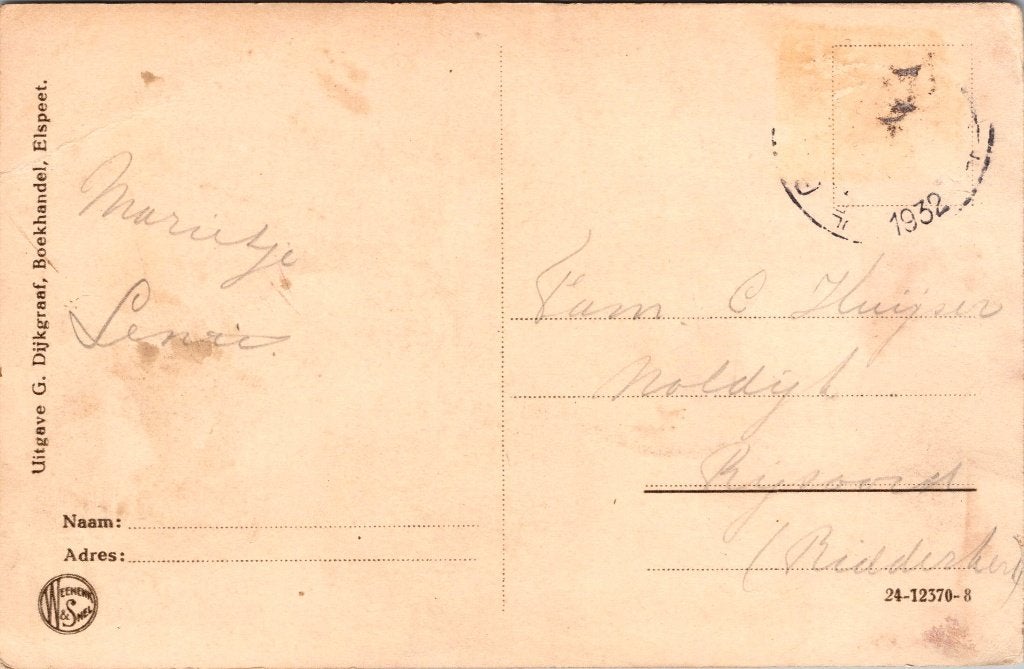 Uitgave G. Dijkgraaf, Boekhandel, Elspeet.
Marietje
1932
Fam C Huijser
Noldijk
Rijsoord
(Ridderkerk)
Naam:
Adres:
WEENENK & SNEL
24-12370-8